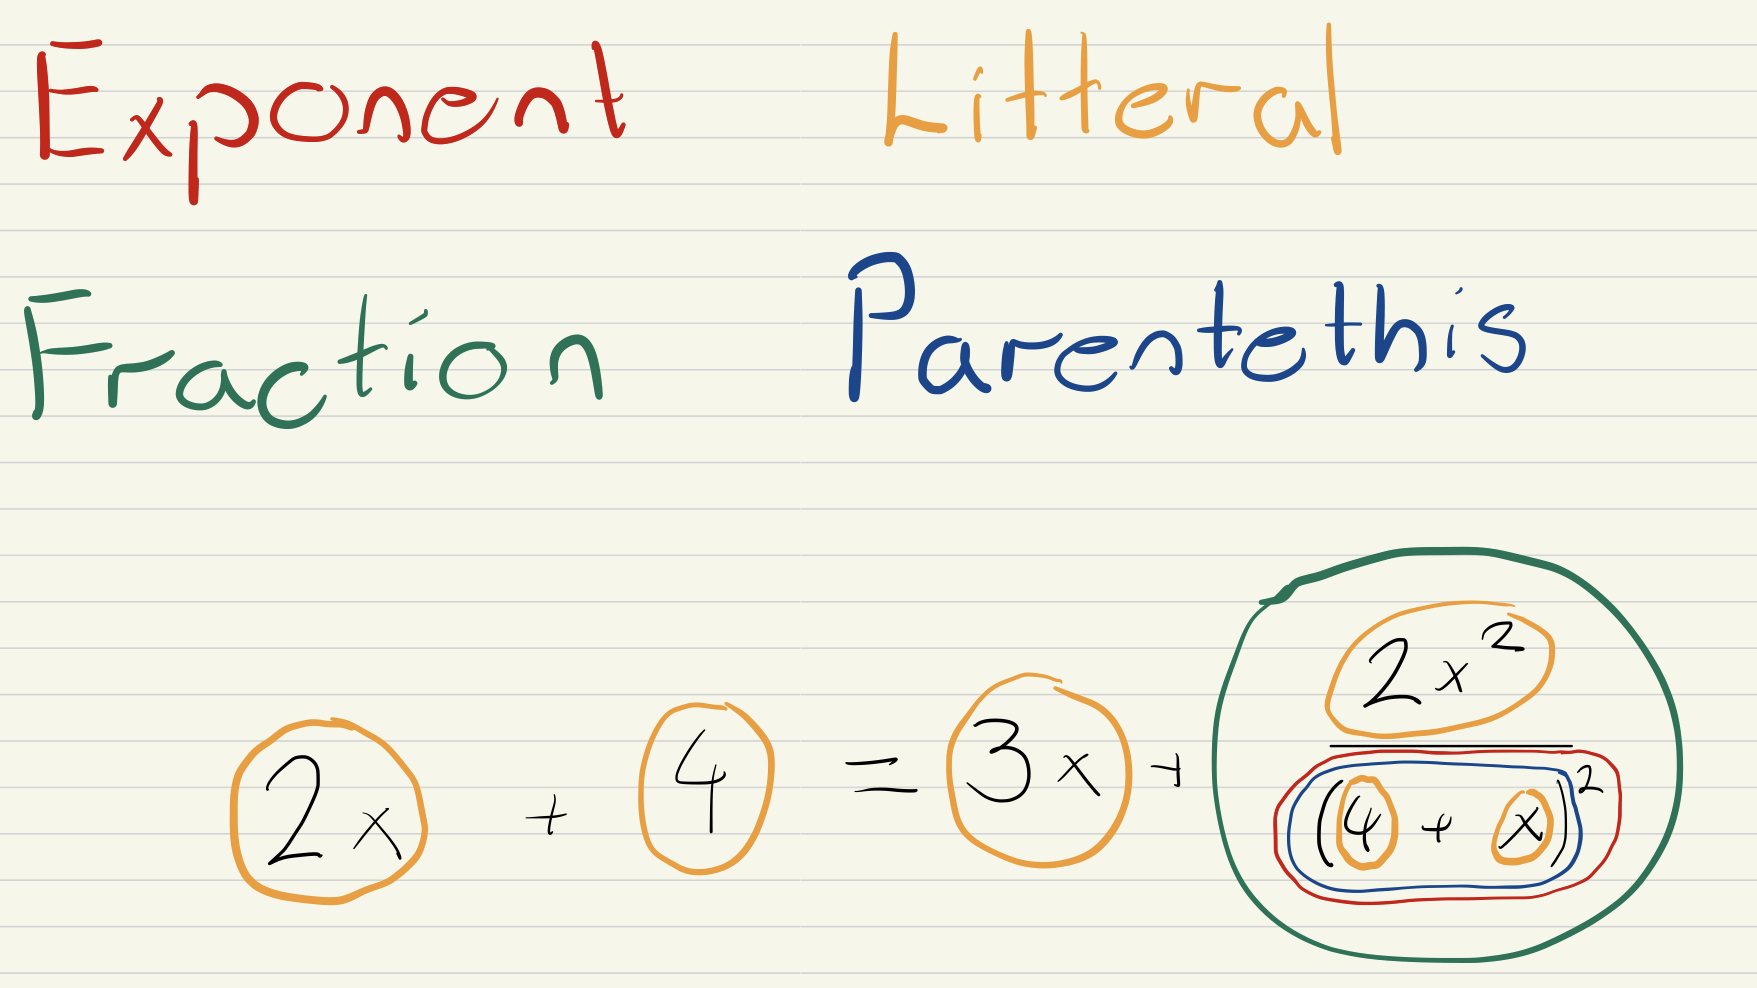 Exponent Litteral
Fraction Parentethis
2x + 4 = 3x + 2x² / (4 + x)²